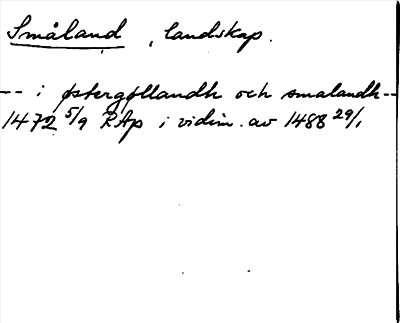 Småland, landskap.
-- i østergøllandh och smalandh --
1472 5/9 RAp i vidim. av 1488 29/1